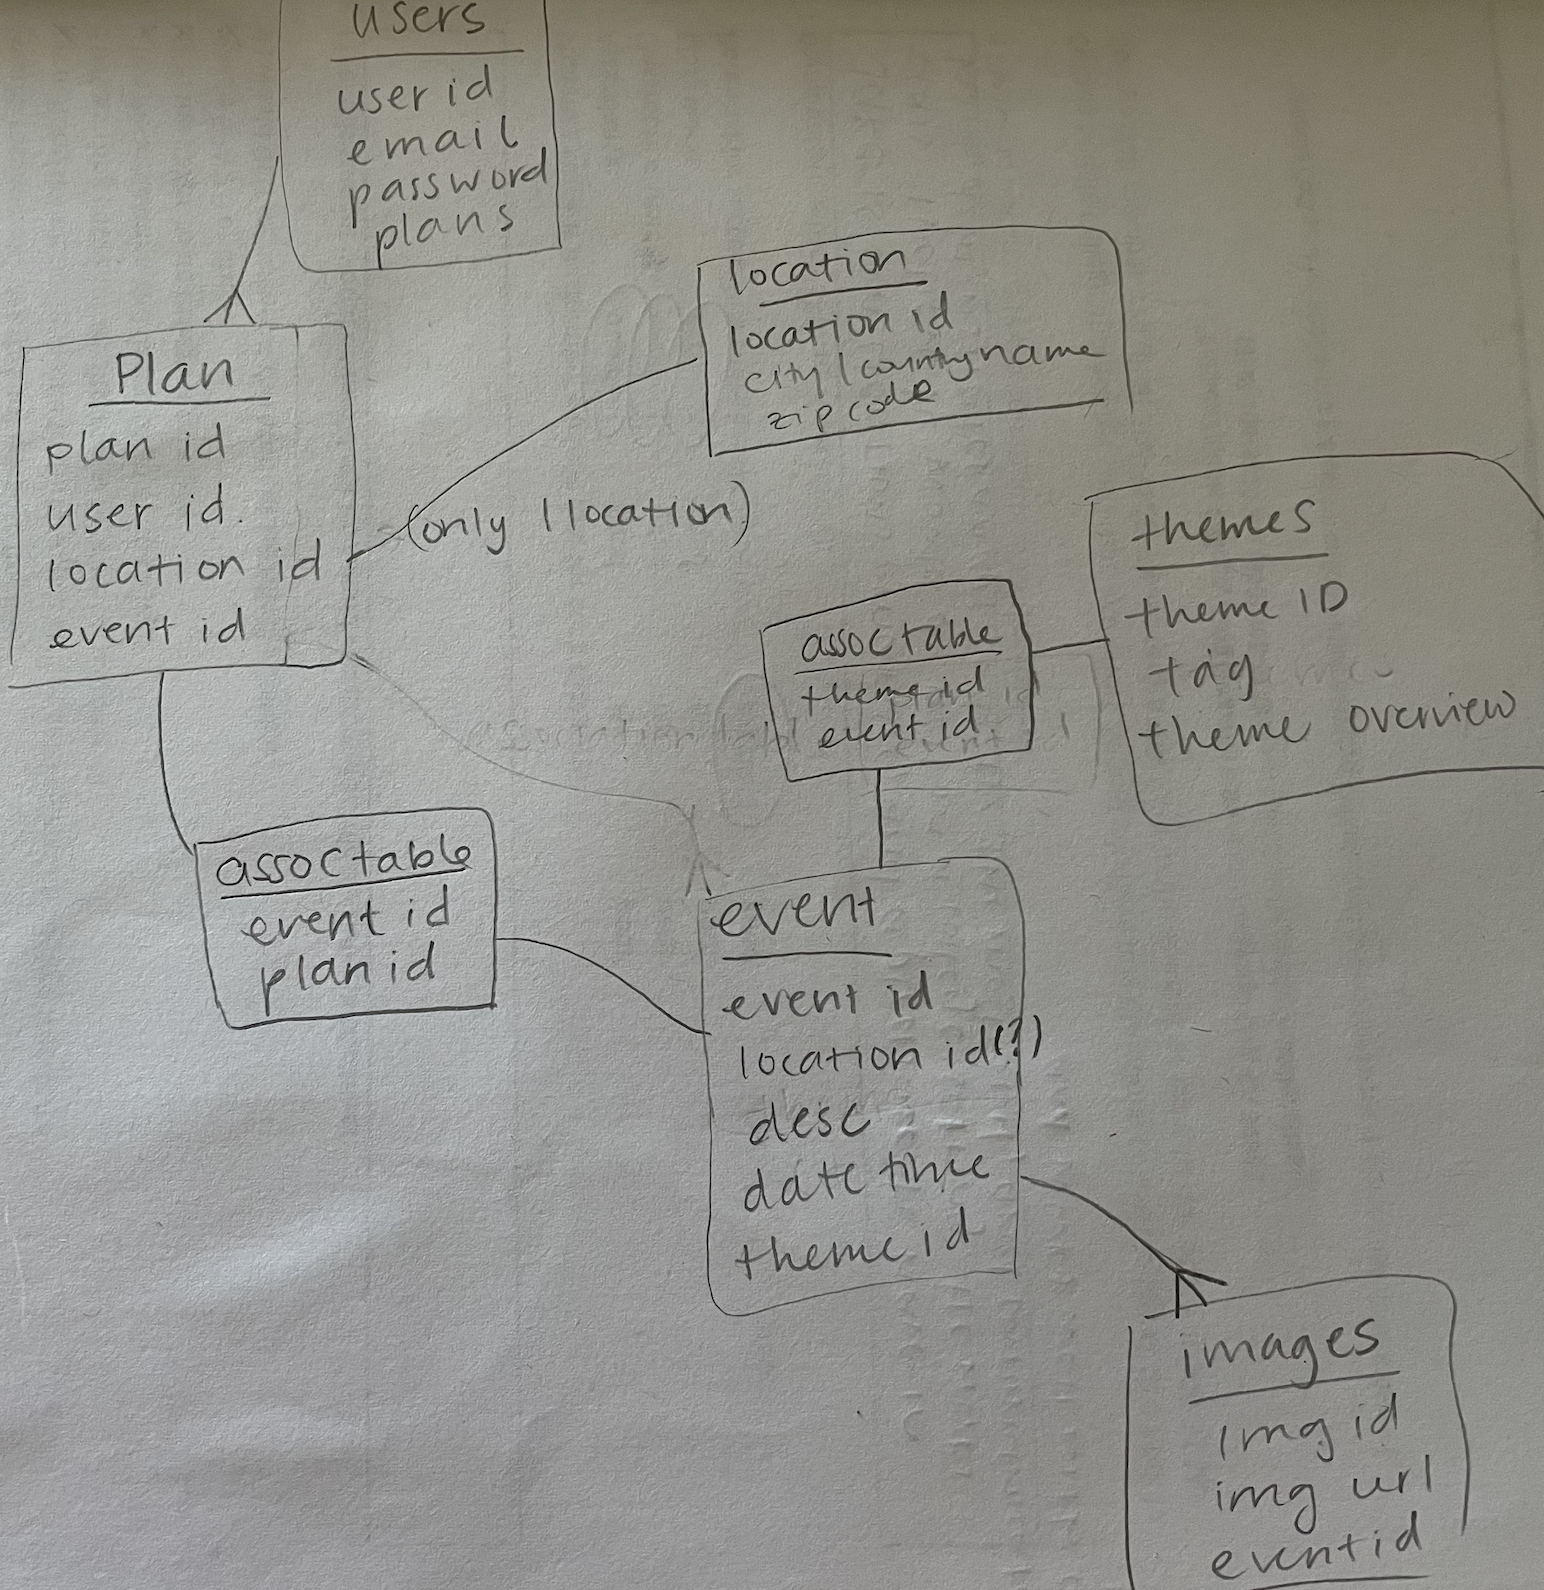 users
user id
email
password
plans
location
location id
city / county name
zip code
Plan
plan id
user id.
location id
event id
(only 1 location)
themes
theme ID
tag
theme overview
assoc table
theme id
event id
assoc table
event id
plan id
event
event id
location id(?)
desc
date time
theme id
images
img id
img url
event id